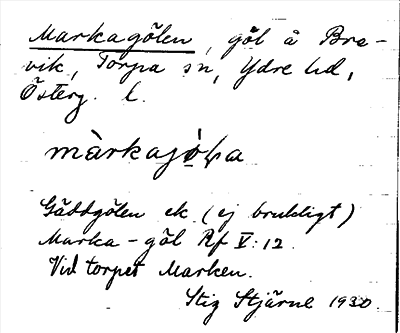 Markagölen, göl å Bra-
vik, Torpa sn, Ydre hd,
Österg. l.
màrkajó̤ɫa
Gäddgölen ek. (ej brukligt)
Marka-göl Rf V:12.
Vid torpet Marken.
Stig Stjärne 1930.